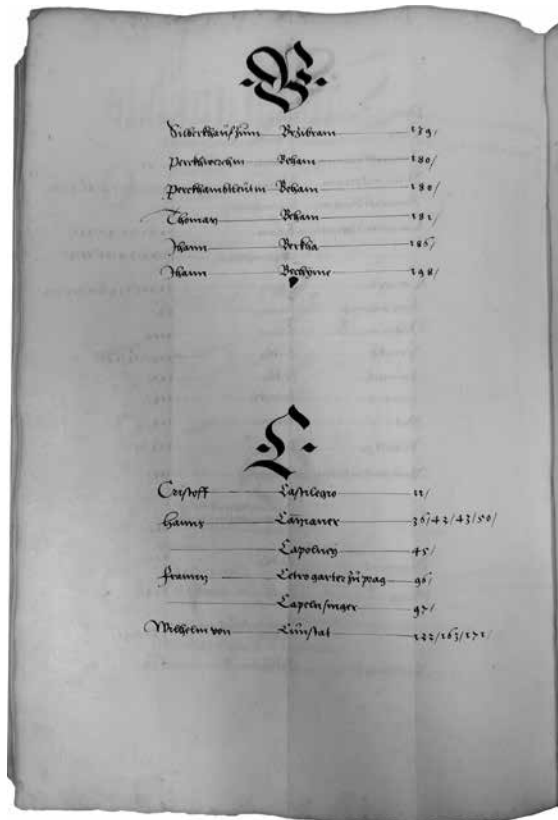 B
Silberkhauf zum Bezibram 139/
Perckhwerchm Beham 180/
Perckhambtleutn Beham 180/
Thoman Beham 181/
Jhann Berkha 186/
Jhann Bechyine 198/
C
Cristoff Castilegio 11/
Hanns 36/42/43/50/
45/
Cetrogarter zu prag 96/
Capelnsinger 97/
Wilhelm von Cunstat 122/163/171/